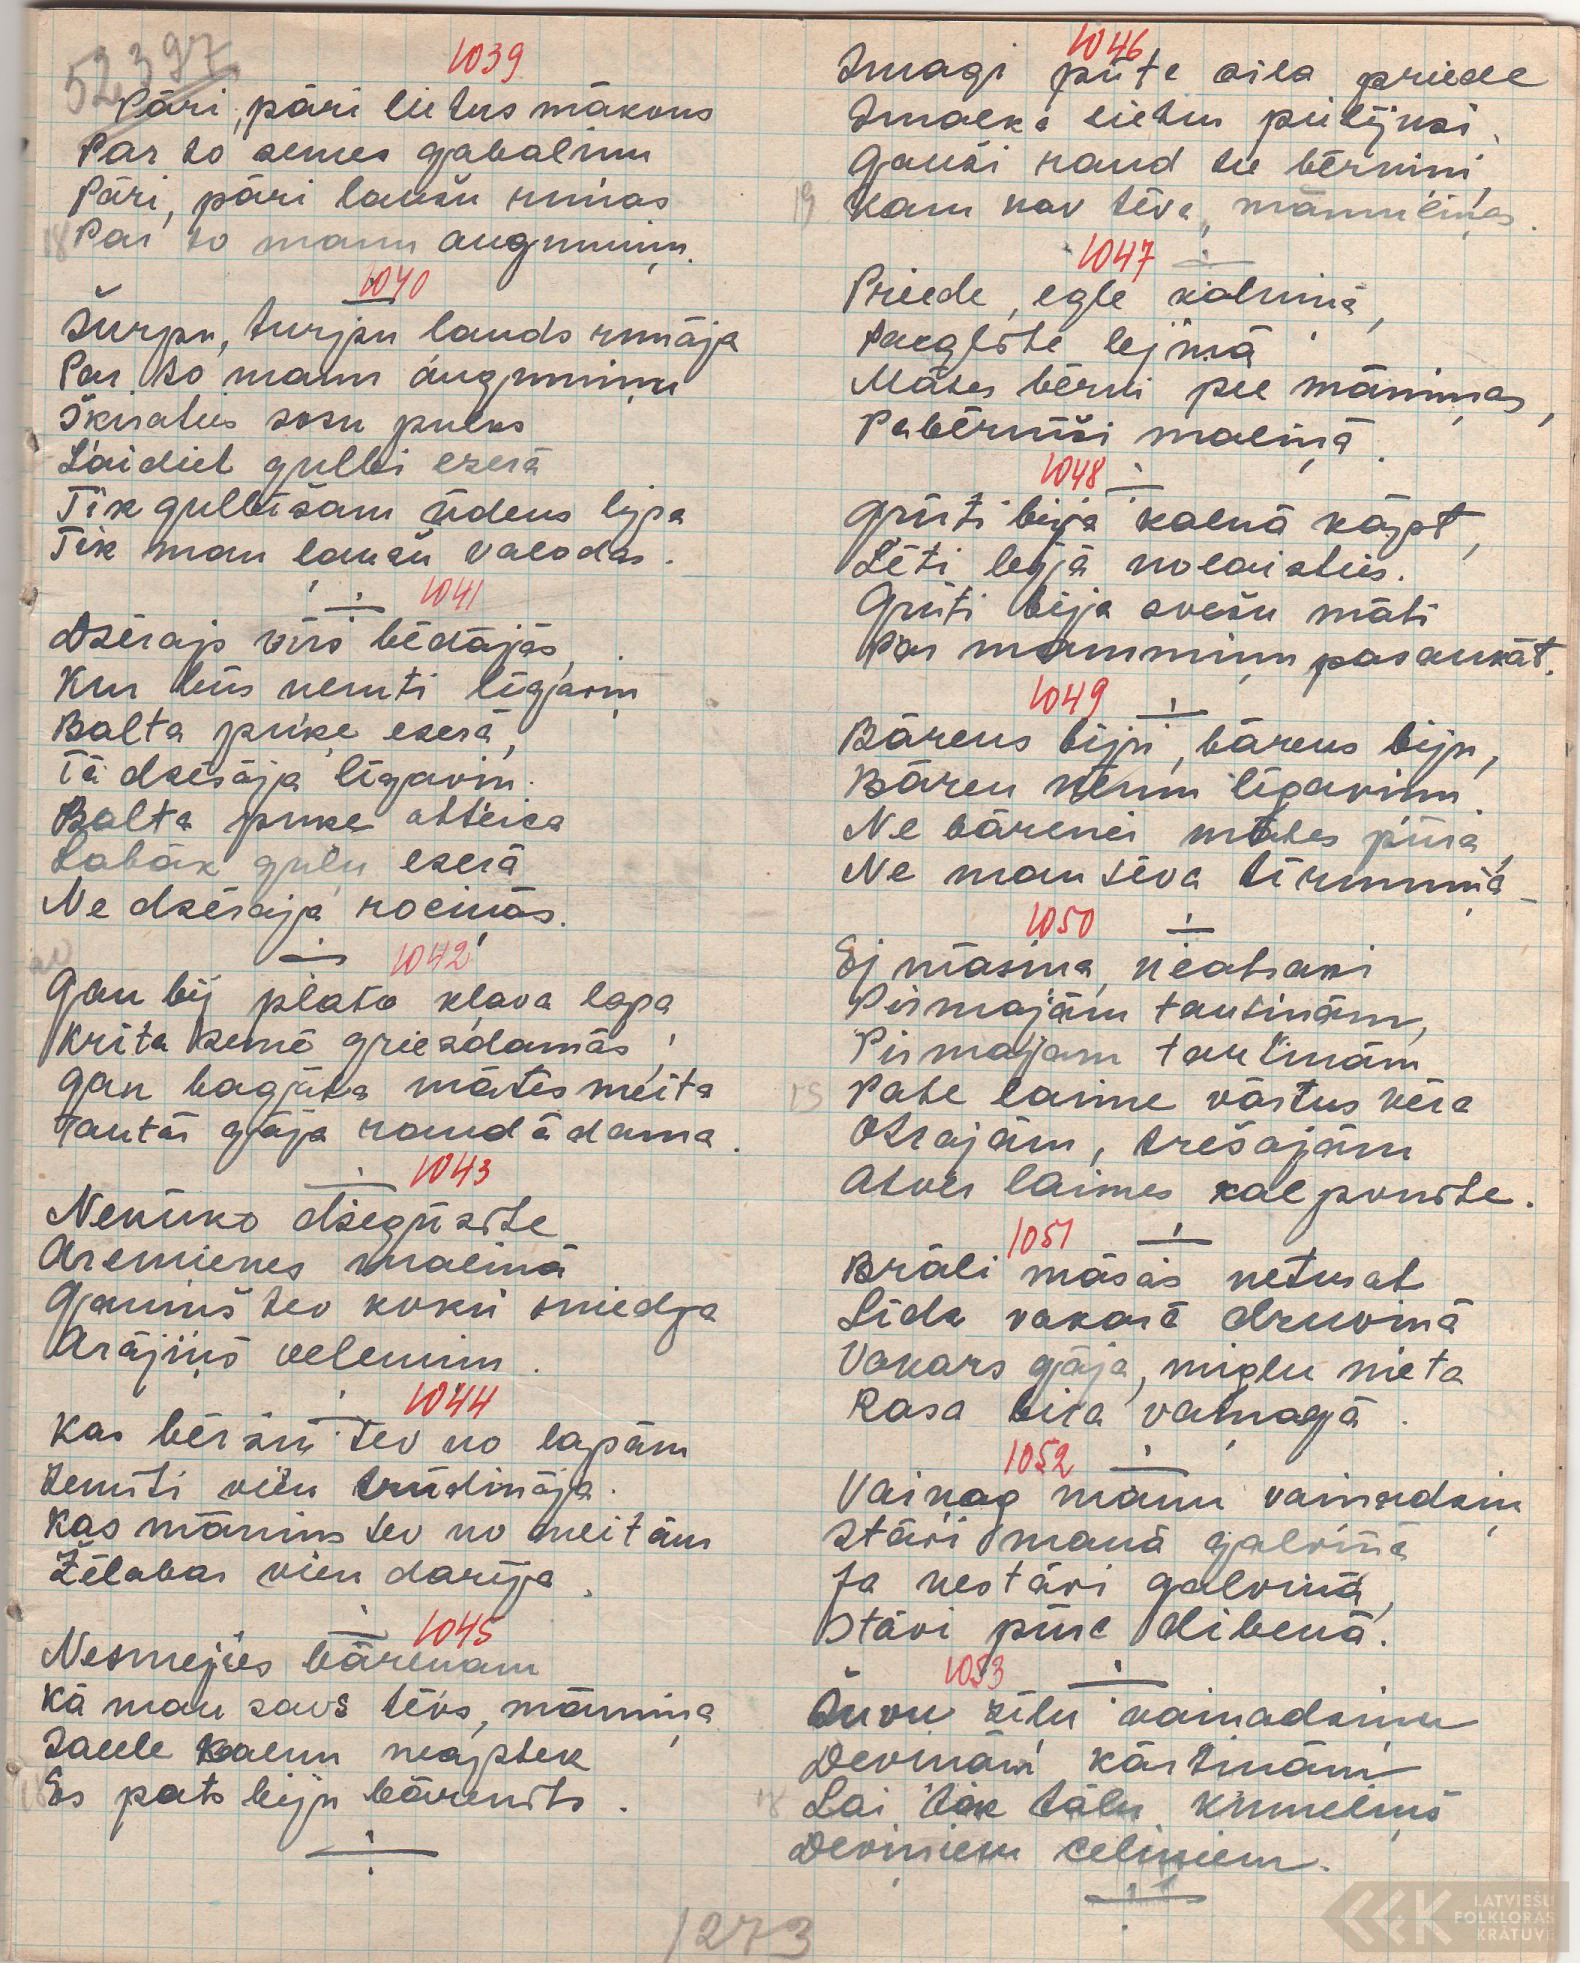 52,397
1039
Pāri, pāri lietus mākons
Par to zemes gabaliņu
Pāri, pāri laužu runas
18 Par to manu augumiņu.
1040
Šurpu, turpu lauds runāja
Par to manu augumiņu
Šķiraties zosu pulks
Laidiet gulbi ezerā
Tik gulbīšam ūdens lipa
Tik man laužu valodas.
1041
Dzērajs vīrs bēdājās,
Kur būs nemti līgavin
Balta puķe ezerā,
Tā dzērāja līgavin.
Balta puke atteica
Labāk guļu ezerā
Ne dzērāja rociņās.
1042
Gan bij plata kļava lapa
Krita zemē griezdamās,
Gan bagāta mātes meita
Tautās gāja raudādama.
1043
Nekūko dzegūzīte
Aremienes maliņā
Ganiņš tev koku sniedza
Arājiņš velenim.
1044
Kas bērzu tev no lapām
Zemīti vien trūdināja.
Kas māmiņ tev no meitām
Žēlabas vien darīja.
1045
Nesmejies bārenam
Kā man savs tēvs, māmiņa
Saule kalnu neaptek
18 Es pats biju bārenīts.
1046
Smagi pūte sila priede
Smalka lietu pielijusi.
Gauži raud tie bērniņi,
19 Kam nav tēva, māmuliņas.
1047
Priede, egle kalniņā,
Paeglīte lejiņā
Mātes bērni pie māmiņas,
Pabērnīši maliņā.
1048
Grūti bija kalnā kāpt,
Lēti lejā nolaisties.
Grūti bija svešu māti
Par mammiņu pasaukāt.
1049
Bārens biju, bārens biju,
Bāreu nēmu līgaviņu.
Ne bārenei mātes pūra,
Ne man tēva tīrumiņa
1050
Ej māsiņa, neatsaki
Pirmajām tautiņām,
Pirmajam tautiņām
15 Pate laime vārtus vēra
Otrajām, trešajām
Atver laimes kalponīte.
1051
Brāli māsas neturat
Līdz vakarā druviņā
Vakars gāja, miglu meta
Rasa bira vaiņagā.
1052
Vaiņag manu vainadziņ
Stāvi manā galviņā
Ja nestāvi galviņā,
Stāvi pūra dibenā.
1053
Šuvu zīlu vainadziņu
Deviņām kārtiņām
18 Lai tik tālu kumeliņš
Deviņiem celiņiem.
1273
LATVIEŠU
FOLKLORAS
KRĀTUVE